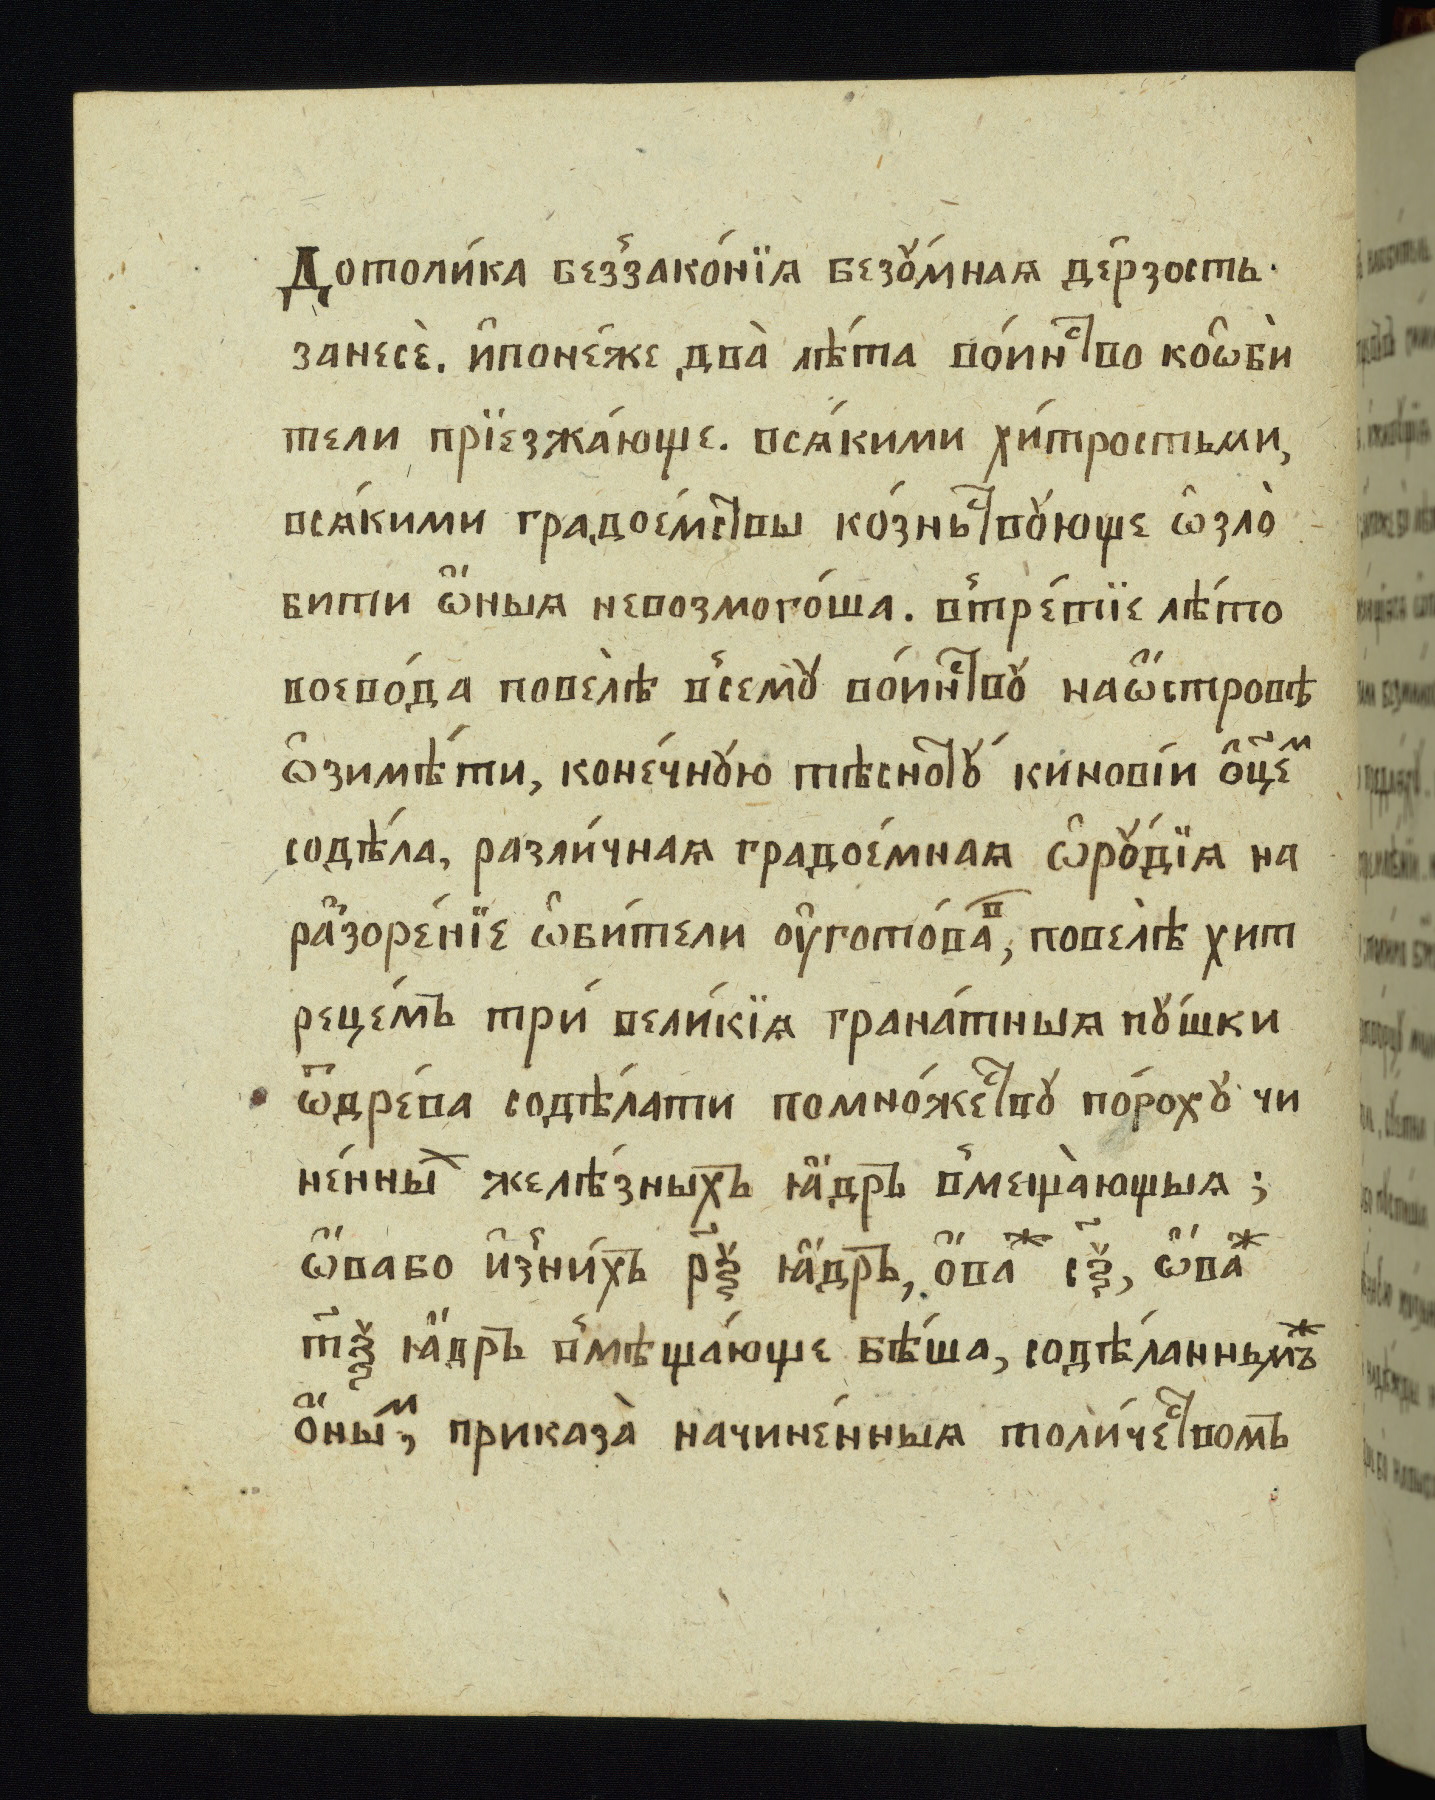 Дотоли́ка беззако́нїѧ безꙋ́мнаѧ де́рзость.
занесѐ. и҆поне́же два̀ лѣ́та во́инⷭ҇тво коѡ҆бѝ
тели прїезжа́юще. всѧ́кими хи́тростьми,
всѧ́кими градоє́мⷭ҇твы ко́зньⷭ҇твꙋюще ѡ҆злѻ̀
бити ѡ҆́ныѧ невозмого́ша. втре́тїе лѣ́то
воево́да повелѣ̀ всемꙋ̀ во́инⷭ҇твꙋ наѡ҆́стровѣ
ѡ҆зимѣ́ти, коне́чнꙋю тѣсноⷭ҇тꙋ́ кинові́и ѻ҆ц҃еⷨ
содѣ́ла, разли́чнаѧ градоє́мнаѧ ѡ҆рꙋ́дїѧ на
разоре́нїе ѡ҆би́тели оу҆гото́ваⷡ, повелѣ̀ хит
реце́мъ три́ вели́кїѧ грана́тныѧ пꙋ́шки
ѿдре́ва содѣ́лати помно́жеⷭ҇твꙋ по́рохꙋ чи
не́нныⷯ желѣ́зныхъ ꙗ҆́дръ вмеща̀ющыѧ;
ѡ҆́вабо и҆зни́хъ р҃ѯ ꙗ҆́дръ, ѻ҆́ваⷤ с҃ѯ, ѡ҆́ваⷤ
т҃ѯ ꙗ҆́дръ вмѣща́юще бѣ́ша, содѣ́ланнымъⷤ
ѻ҆́ныⷨ, приказа̀ начине́нныѧ толи́чеⷭ҇твомъ